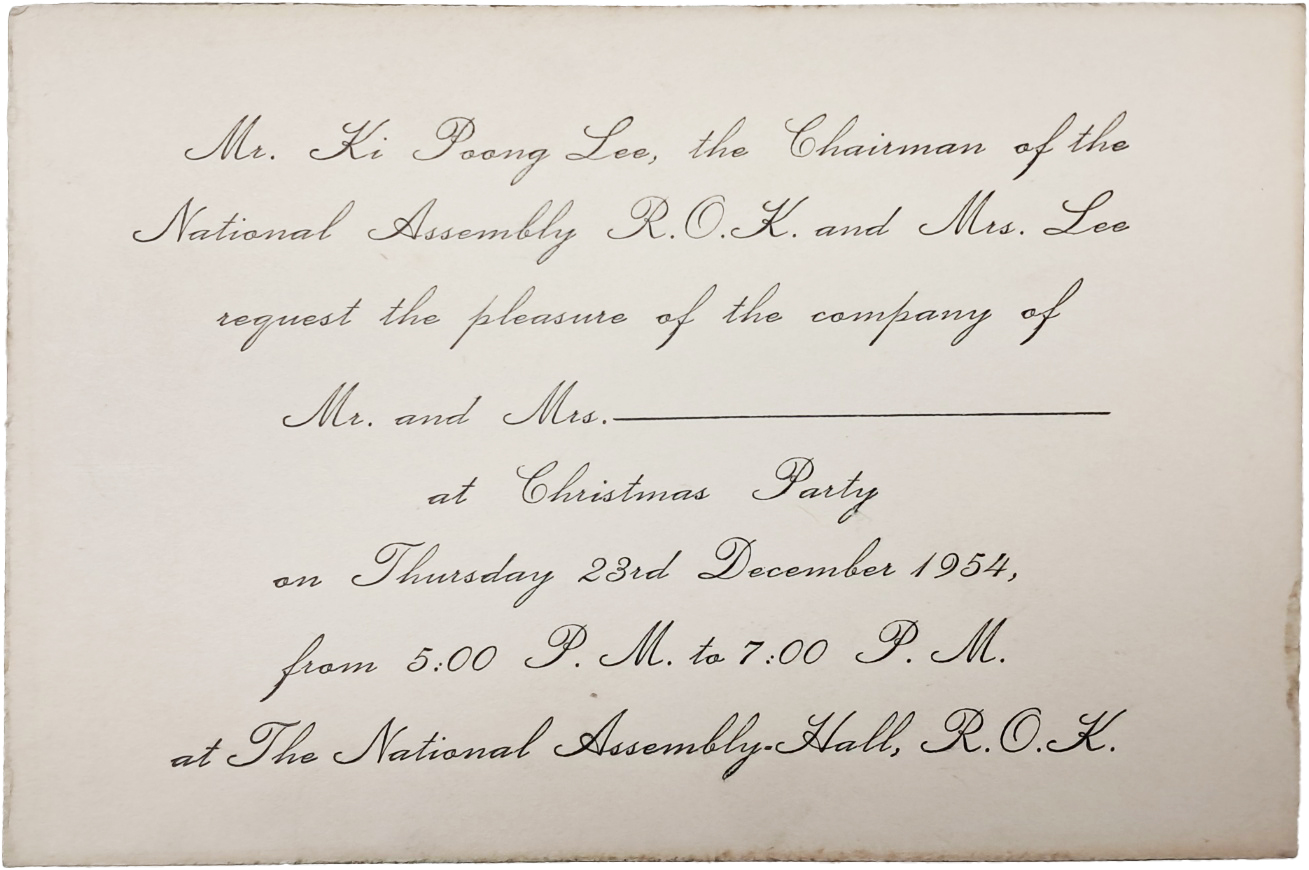 Mr. Ki Poong Lee, the Chairman of the
National Assembly R.O.K. and Mrs. Lee
request the pleasure of the company of
Mr. and Mrs.
at Christmas Party
on Thursday 23rd December 1954,
from 5:00 P. M. to 7:00 P. M.
at The National Assembly-Hall, R.O.K.